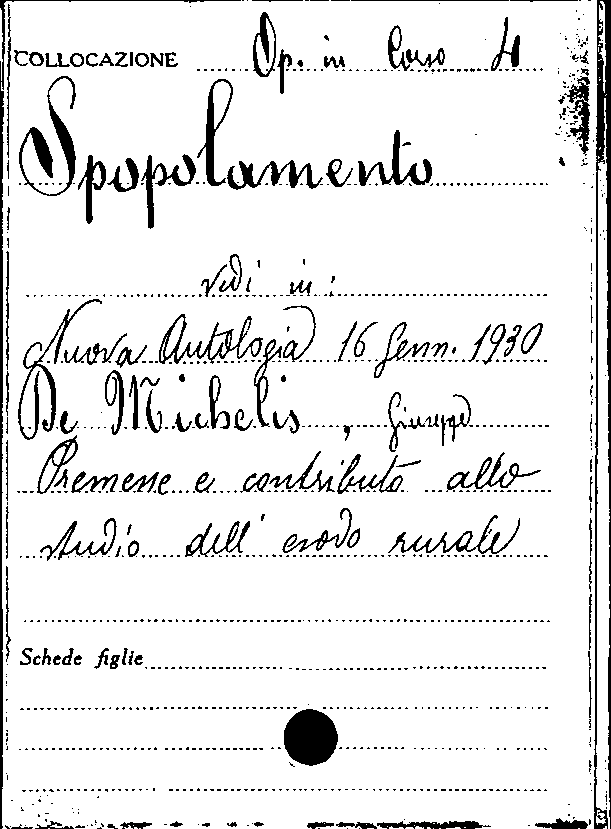 COLLOCAZIONE Op. in Corso 4
Spopolamento
vedi in:
Nuova Antologia 16 Genn. 1930
De Michelis, Giuseppe
Premesse e contributo allo
studio dell' esodo rurale
Schede figlie